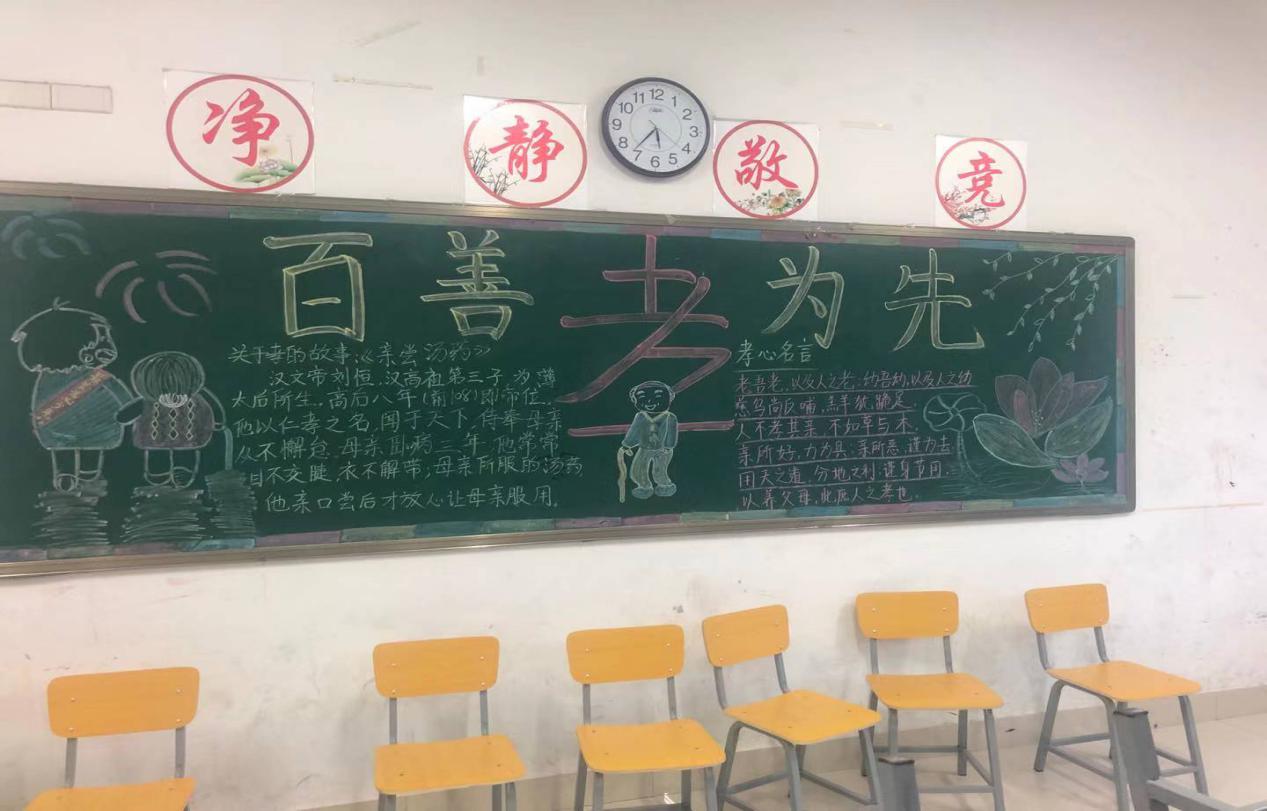 净 静 敬 竞
12 1 2 3 4 5 6 7 8 9 10 11
百善孝为先
关于孝的故事:《亲尝汤药》
汉文帝刘恒,汉高祖第三子,为薄
太后所生。高后八年(前108)即帝位。
他以仁孝之名,闻于天下,侍奉母亲
从不懈怠。母亲卧病三年,他常常
目不交睫,衣不解带;母亲所服的汤药,
他亲口尝后才放心让母亲服用。
孝心名言
老吾老,以及人之老;幼吾幼,以及人之幼
慈乌尚反哺,羔羊犹跪足
人不孝其亲,不如草与木
亲所好,力为具;亲所恶,谨为去
用天之道,分地之利,谨身节用,
以养父母,此庶人之孝也。